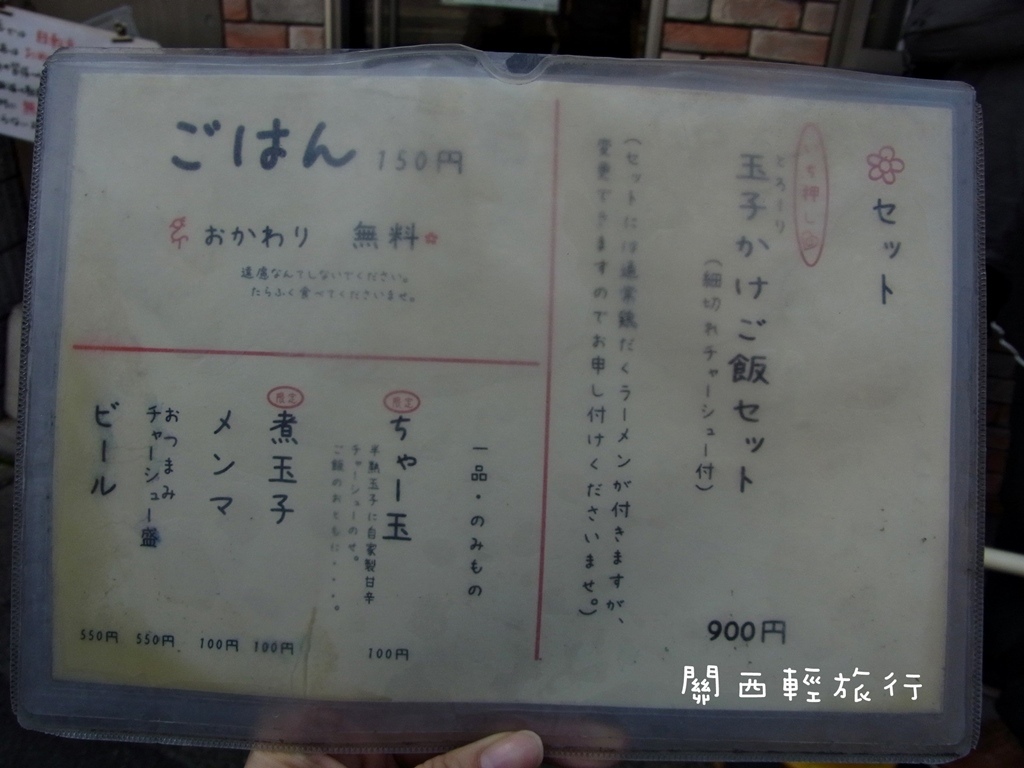 セット
いち押し
とろーり
玉子かけご飯セット
(細切れチャーシュー付)
900円
(セットには濃厚鶏だくラーメンが付きますが、
変更できますのでお申し付けくださいませ。)
ごはん 150円
おかわり 無料
遠慮なんてしないでください。
たらふく食べてくださいませ。
一品・のみもの
限定
ちゃー玉
半熟玉子に自家製甘辛
チャーシューのせ。
ご飯のおともに・・・。
100円
限定
煮玉子
100円
メンマ
100円
おつまみ
チャーシュー盛
550円
ビール
550円
關西輕旅行